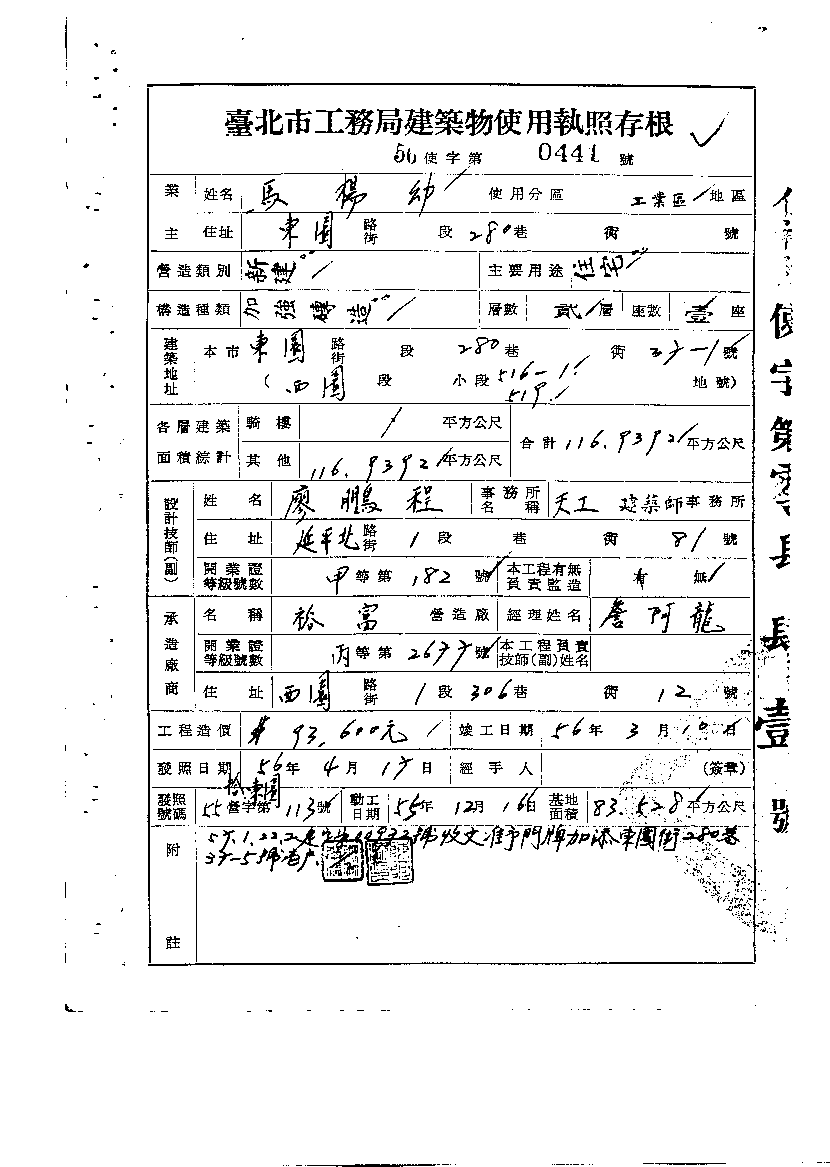 臺北市工務局建築物使用執照存根
56使字第 0441 號
業主 姓名 馬楊幼 使用分區 工業區 地區
住址 東園 路街 段 280巷 衖 號
營造類別 新建 主要用途 住宅
構造種類 加強磚造 層數 貳層 座數 壹座
建築地址 本市 東園 路街 段 280巷 衖 37-1號
(西園 段 小段 516-1 519 地號)
各層建築面積綜計 騎樓 / 平方公尺 合計 116.9392平方公尺
其他 116.9392平方公尺
設計技師(副) 姓名 廖鵬程 事務所名稱 天工 建築師事務所
住址 延平北 路街 1段 巷 衖 81號
開業證等級號數 甲等第182號 本工程有無負責監造 有 無
承造廠商 名稱 裕富 營造廠 經理姓名 詹阿龍
開業證等級號數 丙等第 2677號 本工程負責技師(副)姓名
住址 西園 路街 1段 306巷 衖 12號
工程造價 93,600元 竣工日期 56年3月10日
發照日期 56年4月17日 經手人 (簽章)
發照號碼 55營字第 113號 動工日期 55年12月16日 基地面積 83.528平方公尺
拾東園
附註 57.1.22. 號收文准予門牌加添東園街280巷
37-5號
使字第零 壹號